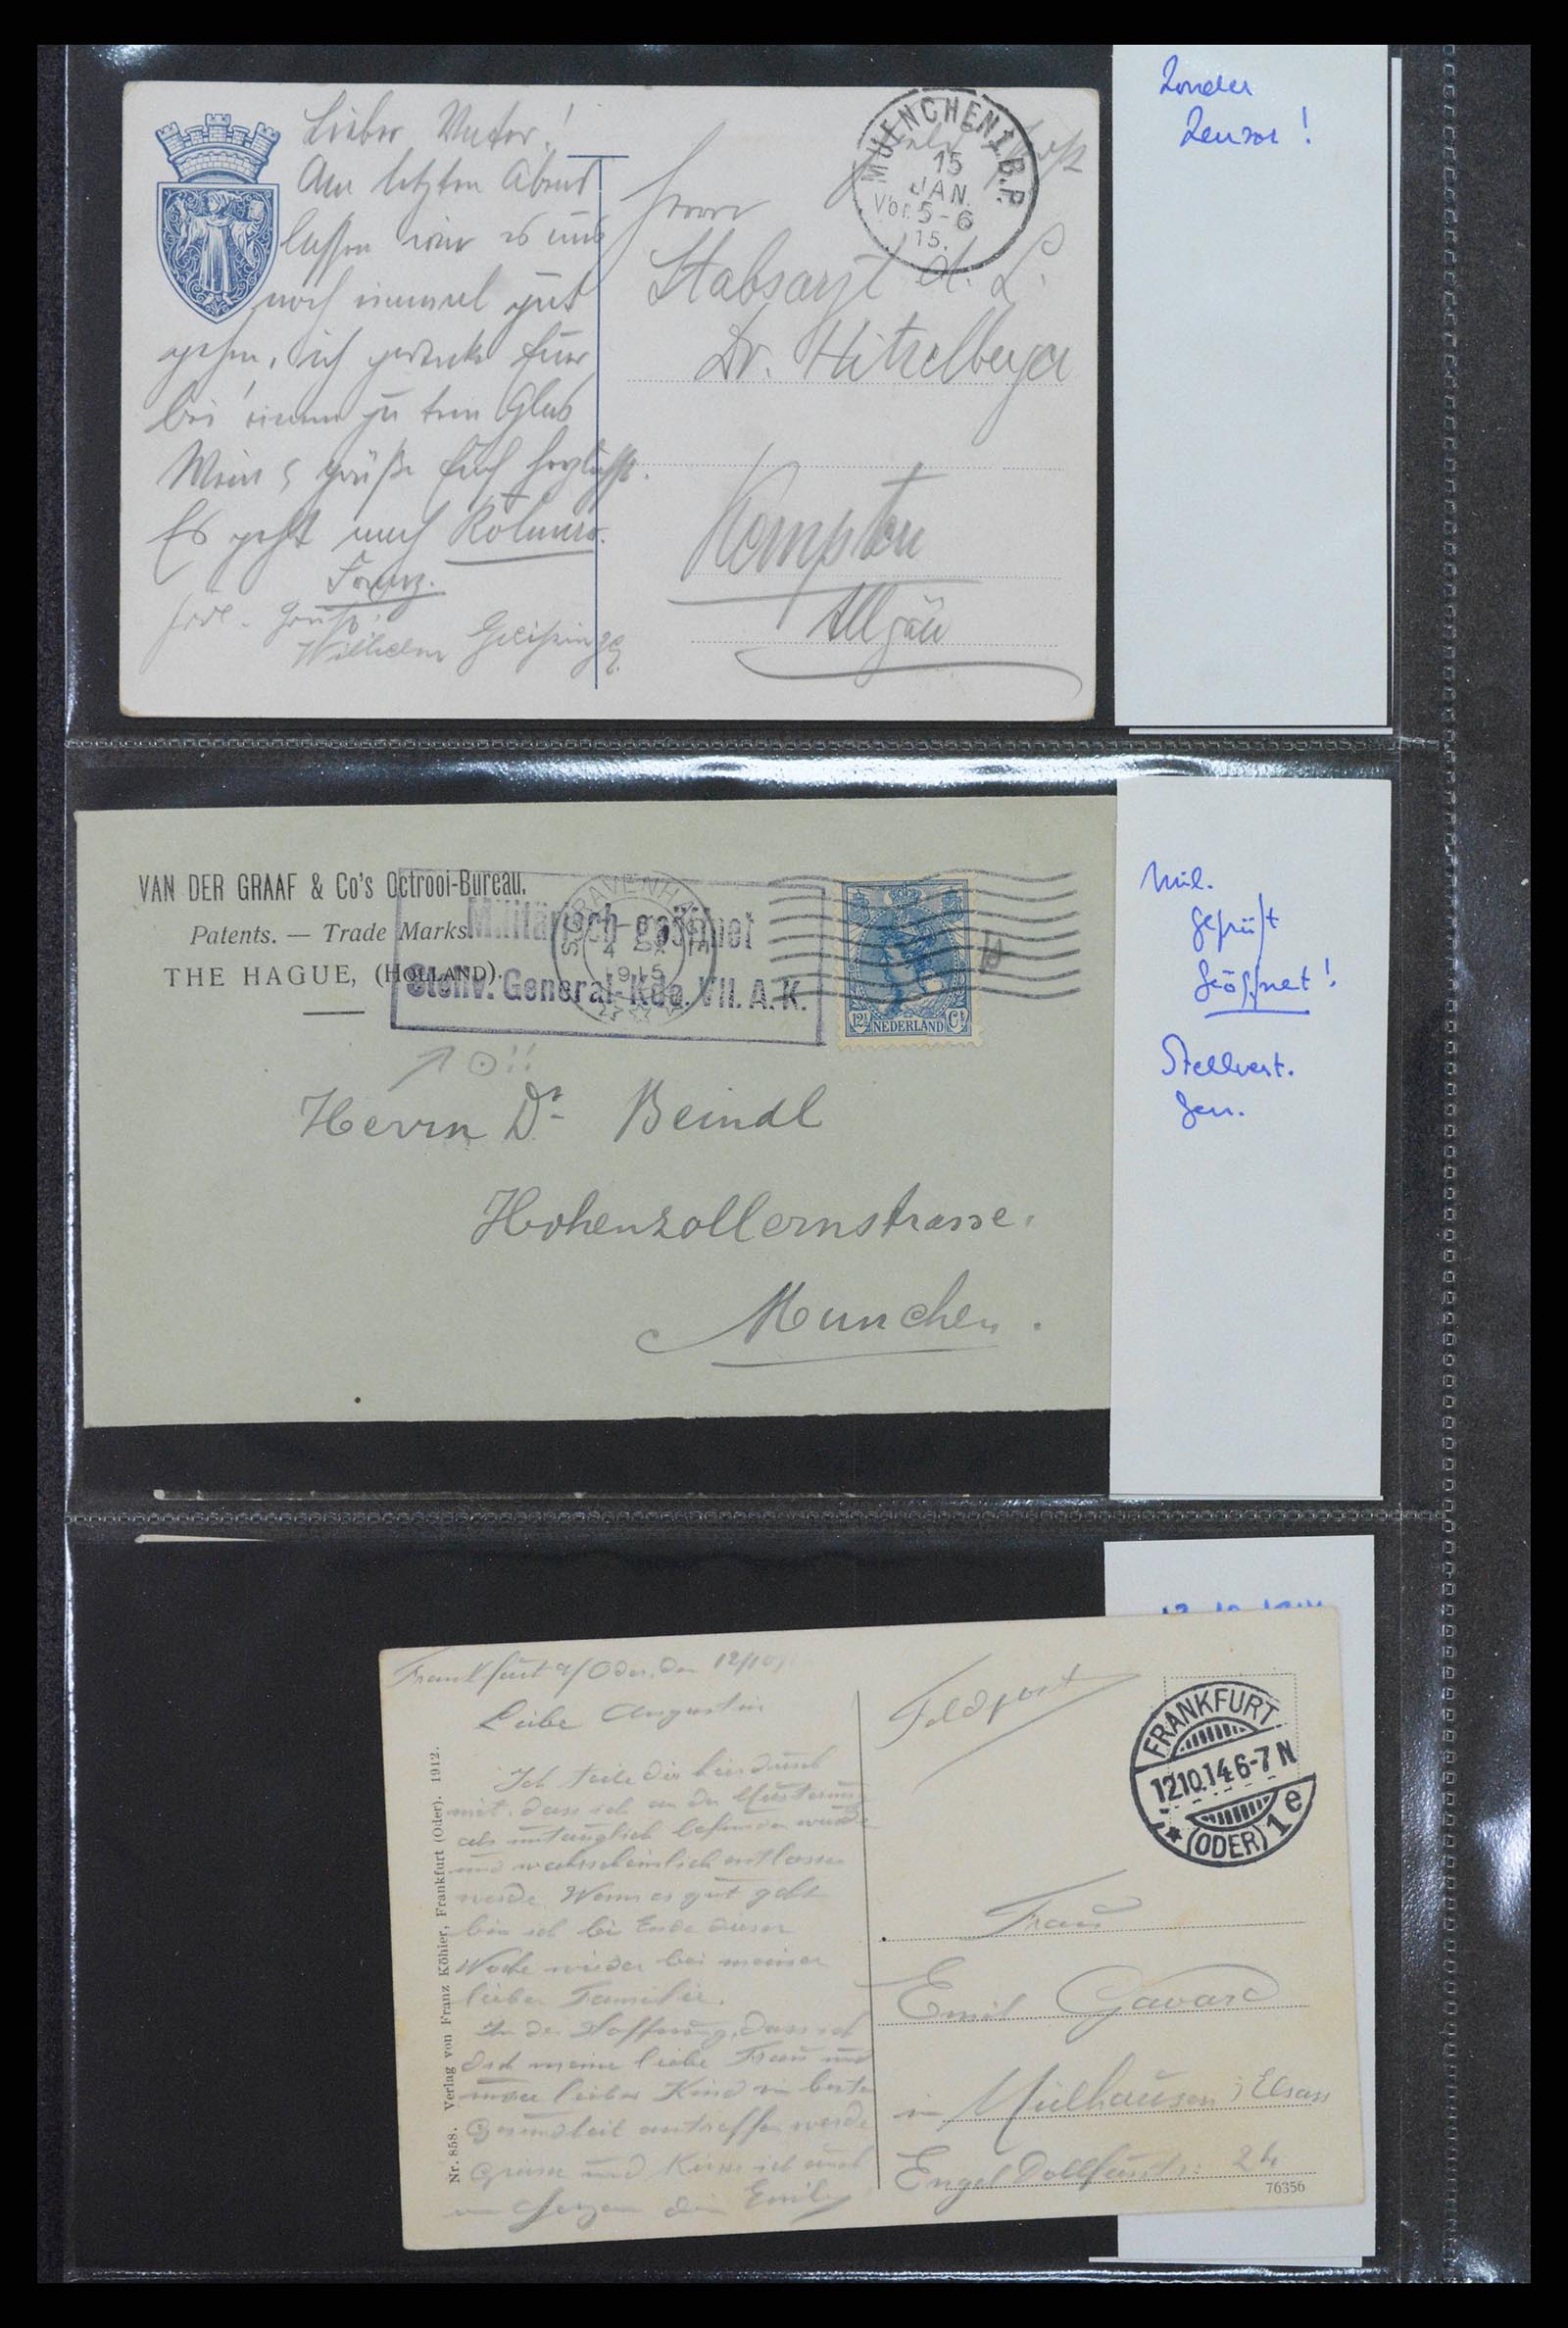 Lieber Vater!
Am letzten Abend
lassen wir es uns
noch einmal gut
gehen, ich gedenke Euer
bei einem guten Glas
Wein & grüße Euch herzlichst.
Es geht nach
Franz.
Gruß
Wilhelm
MUENCHEN 1. B.P.
15
JAN.
Vor. 5-6
15.
Herrn
Stabsarzt d. L.
Dr. Hitzelberger
Kempten
Allgäu
Zonder
Zensor!
VAN DER GRAAF & Co's Octrooi-Bureau.
Patents. — Trade Marks.
THE HAGUE, (HOLLAND).
Militärisch geöffnet
Stellv. General-Kdo. VII. A. K.
'S GRAVENHAGE
4
1915
12½ NEDERLAND Ct
Herrn Dr. Beindl
Hohenzollernstrasse.
Munchen.
Mil.
geprüft
Geöffnet!
Stellvert.
Gen.
Frankfurt a/Oder, den 12/10
Liebe Augustin
Ich teile dir hierdurch
mit, dass ich an der Musterung
als untauglich befunden wurde
und wahrscheinlich entlassen
werde. Wenn es gut geht
bin ich bis Ende dieser
Woche wieder bei meiner
lieben Familie.
In der Hoffnung, dass ich
dich meine liebe Frau und
unser liebes Kind in bester
Gesundheit antreffen werde
Grüsse und Küsse ich euch
von Herzen dein Emil
Nr. 858. Verlag von Franz Köhler, Frankfurt (Oder). 1912.
Feldpost
FRANKFURT
12.10.14 6-7 N
* (ODER) 1 e
Frau
Emil Gavard
in Mülhausen i Elsass
Engel Dollfusstr. 24
76356